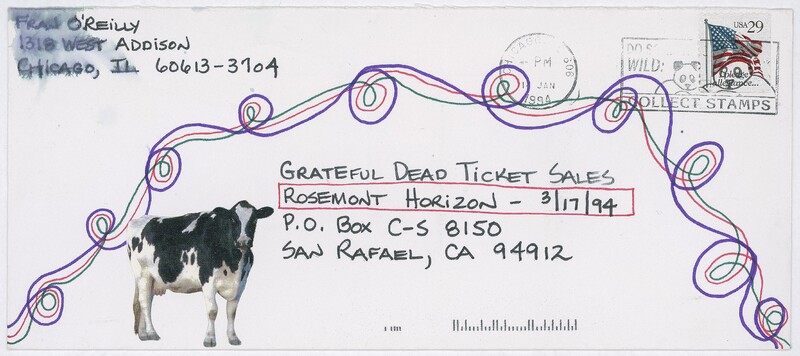 Fran O'Reilly
1318 West Addison
Chicago, IL 60613-3704
CHICAGO 606
PM
JAN
1994
DO SOMETHING
WILD:
COLLECT STAMPS
USA 29
I pledge
allegiance...
Grateful Dead Ticket Sales
Rosemont Horizon - 3/17/94
P.O. Box C-S 8150
San Rafael, CA 94912